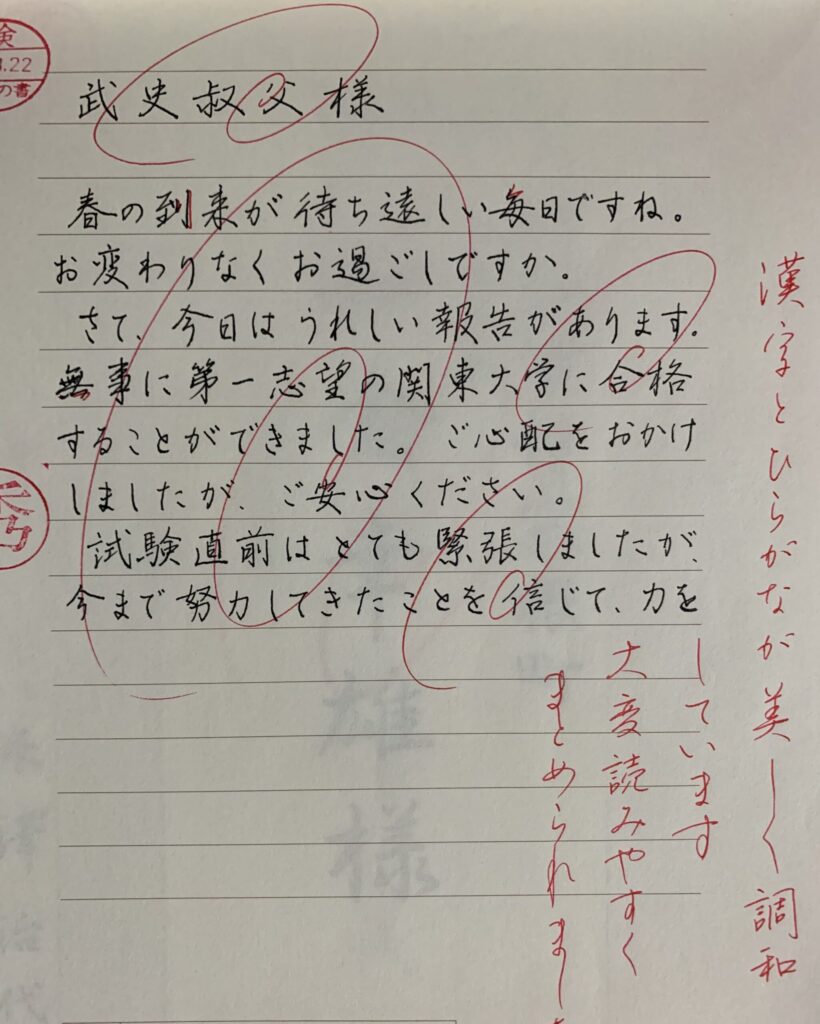 武史叔父様
春の到来が待ち遠しい毎日ですね。
お変わりなくお過ごしですか。
さて、今日はうれしい報告があります。
無事に第一志望の関東大学に合格
することができました。ご心配をおかけ
しましたが、ご安心ください。
試験直前はとても緊張しましたが、
今まで努力してきたことを信じて、力を
漢字とひらがなが美しく調和
しています
大変読みやすく
まとめられまし
.22
の書
秀
雄様